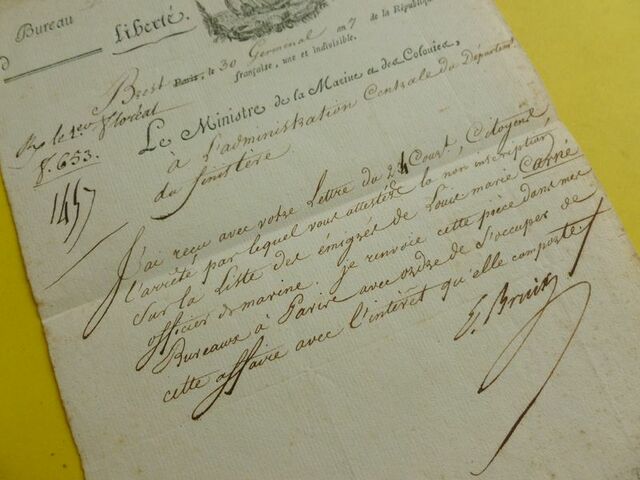 Bureau
Liberté.
Brest Paris, le 30 Germinal an 7 de la République
française, une et indivisible.
le 1er floréal
f. 653.
1457
Le Ministre de la Marine et des Colonies,
à L'administration Centrale du Département
du finistère
J'ai reçu avec votre Lettre du 24 Court, Citoyens,
l'arrêté par lequel vous attestés la non inscription
sur la Liste des émigrés de Louis marie Carné
officier de marine. je renvoie cette pièce dans mes
Bureaux à Paris avec ordre de s'occuper de
cette affaire avec l'intérêt qu'elle comporte
E. Bruix